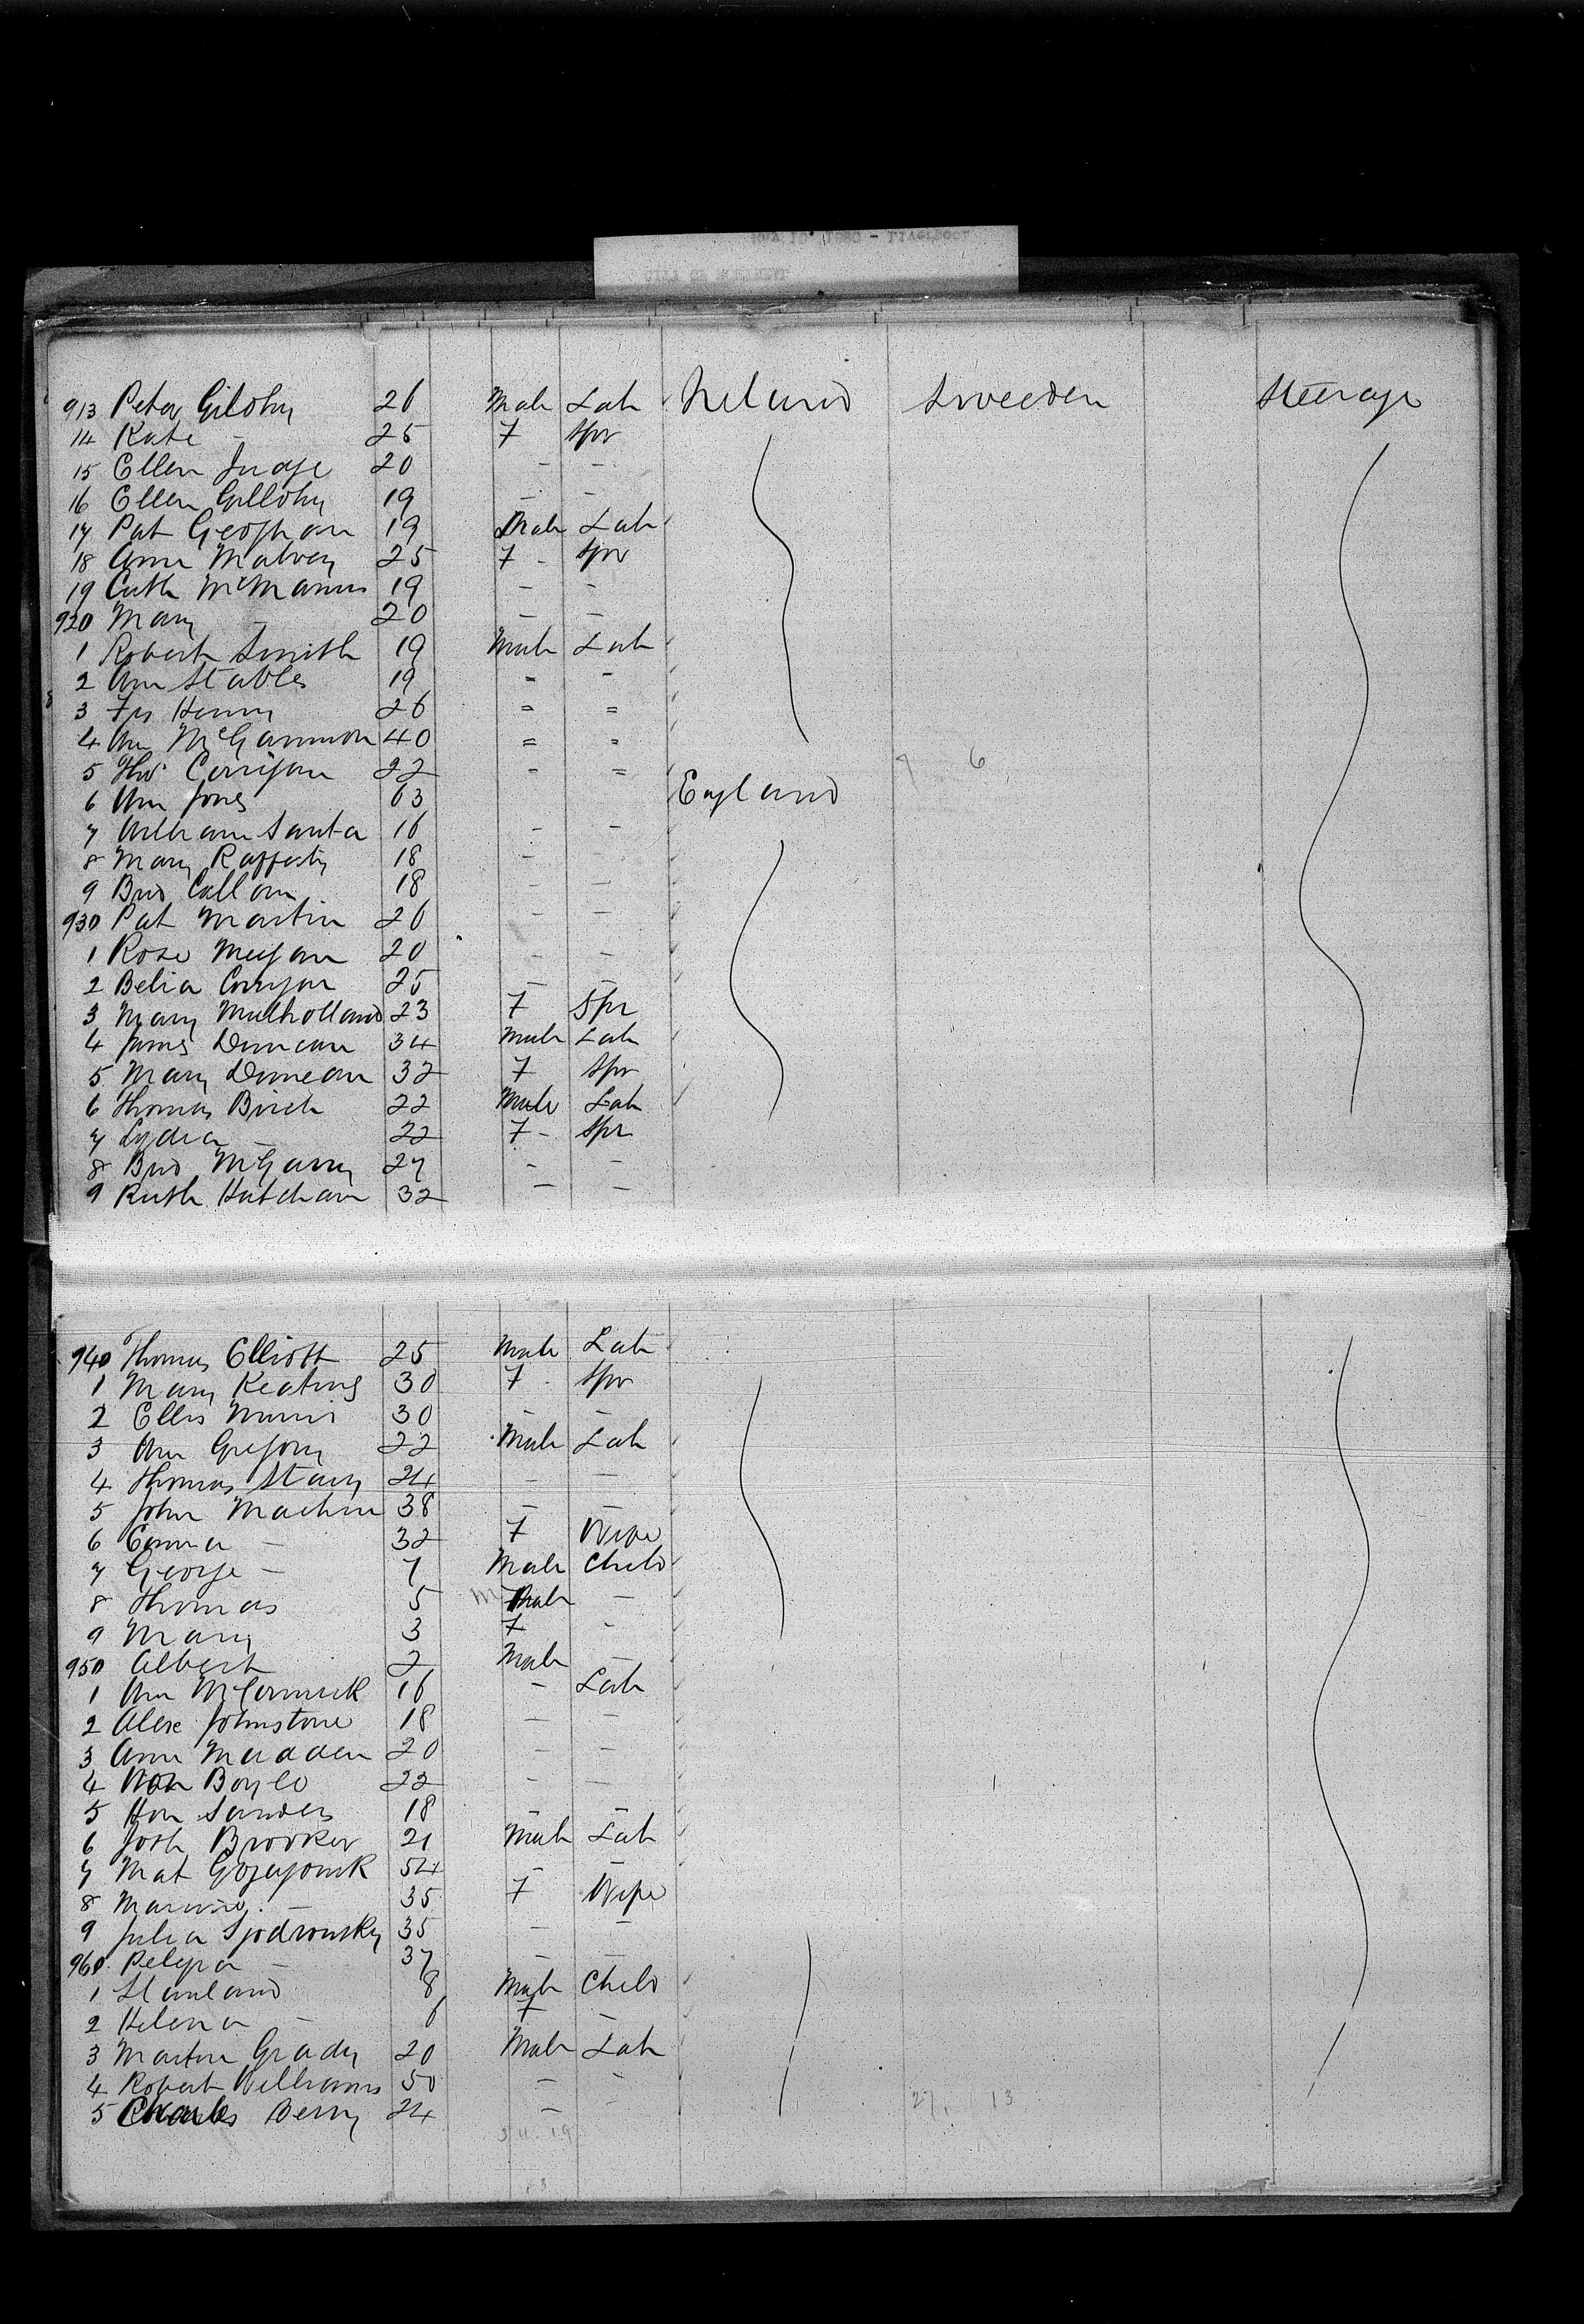 913 Peter Gilohy 26 Male Lab Ireland Sweeden Steerage
14 Kate - 25 F Spr
15 Ellen Judge 20 - -
16 Ellen Gillohy 19 - -
17 Pat Geoghan 19 Male Lab
18 Anne Malvey 25 F - Spr
19 Cath McManus 19 - -
920 Mary - 20 - -
1 Robert Smith 19 Male Lab
2 Wm Stables 19 " "
3 Fs Henry 26 " "
4 Wm McGammon 40 " "
5 Thos Corrigan 22 " " 6
6 Wm Jones 63 England
7 William Santa 16 - -
8 Mary Rafferty 18 -
9 Brid Callan 18 - -
930 Pat Martin 26 - -
1 Rose Meegan 20 - -
2 Belia Corrigan 25 - -
3 Mary Mulholland 23 F Spr
4 James Duncan 34 Male Lab
5 Mary Duncan 32 F Spr
6 Thomas Birch 22 Male Lab
7 Lydia - 22 F - Spr
8 Brid McGarry 27 - -
9 Ruth Hatcham 32 - -
940 Thomas Elliott 25 Male Lab
1 Mary Keating 30 F - Spr
2 Ellis Morris 30 - -
3 Wm Gregory 22 Male Lab
4 Thomas Stacy 24 - -
5 John Machin 38 - -
6 Emma - 32 F Wife
7 George - 7 Male Child
8 Thomas 5 M Male -
9 Mary 3 F -
950 Albert 2 Male -
1 Wm McCormick 16 - Lab
2 Alex Johnstone 18 - -
3 Ann Madden 20 - -
4 Boyle 22 - -
5 Hon Sanders 18 - -
6 Josh Brooker 21 Male Lab
7 Mat 54 - -
8 - 35 F Wife
9 Julia 35 - -
960 - 37 - -
1 Stanland 8 Male Child
2 Helena - 6 F -
3 Martin Grady 20 Male Lab
4 Robert Williams 50 - -
5 Charles Berry 24 - - 27. 13